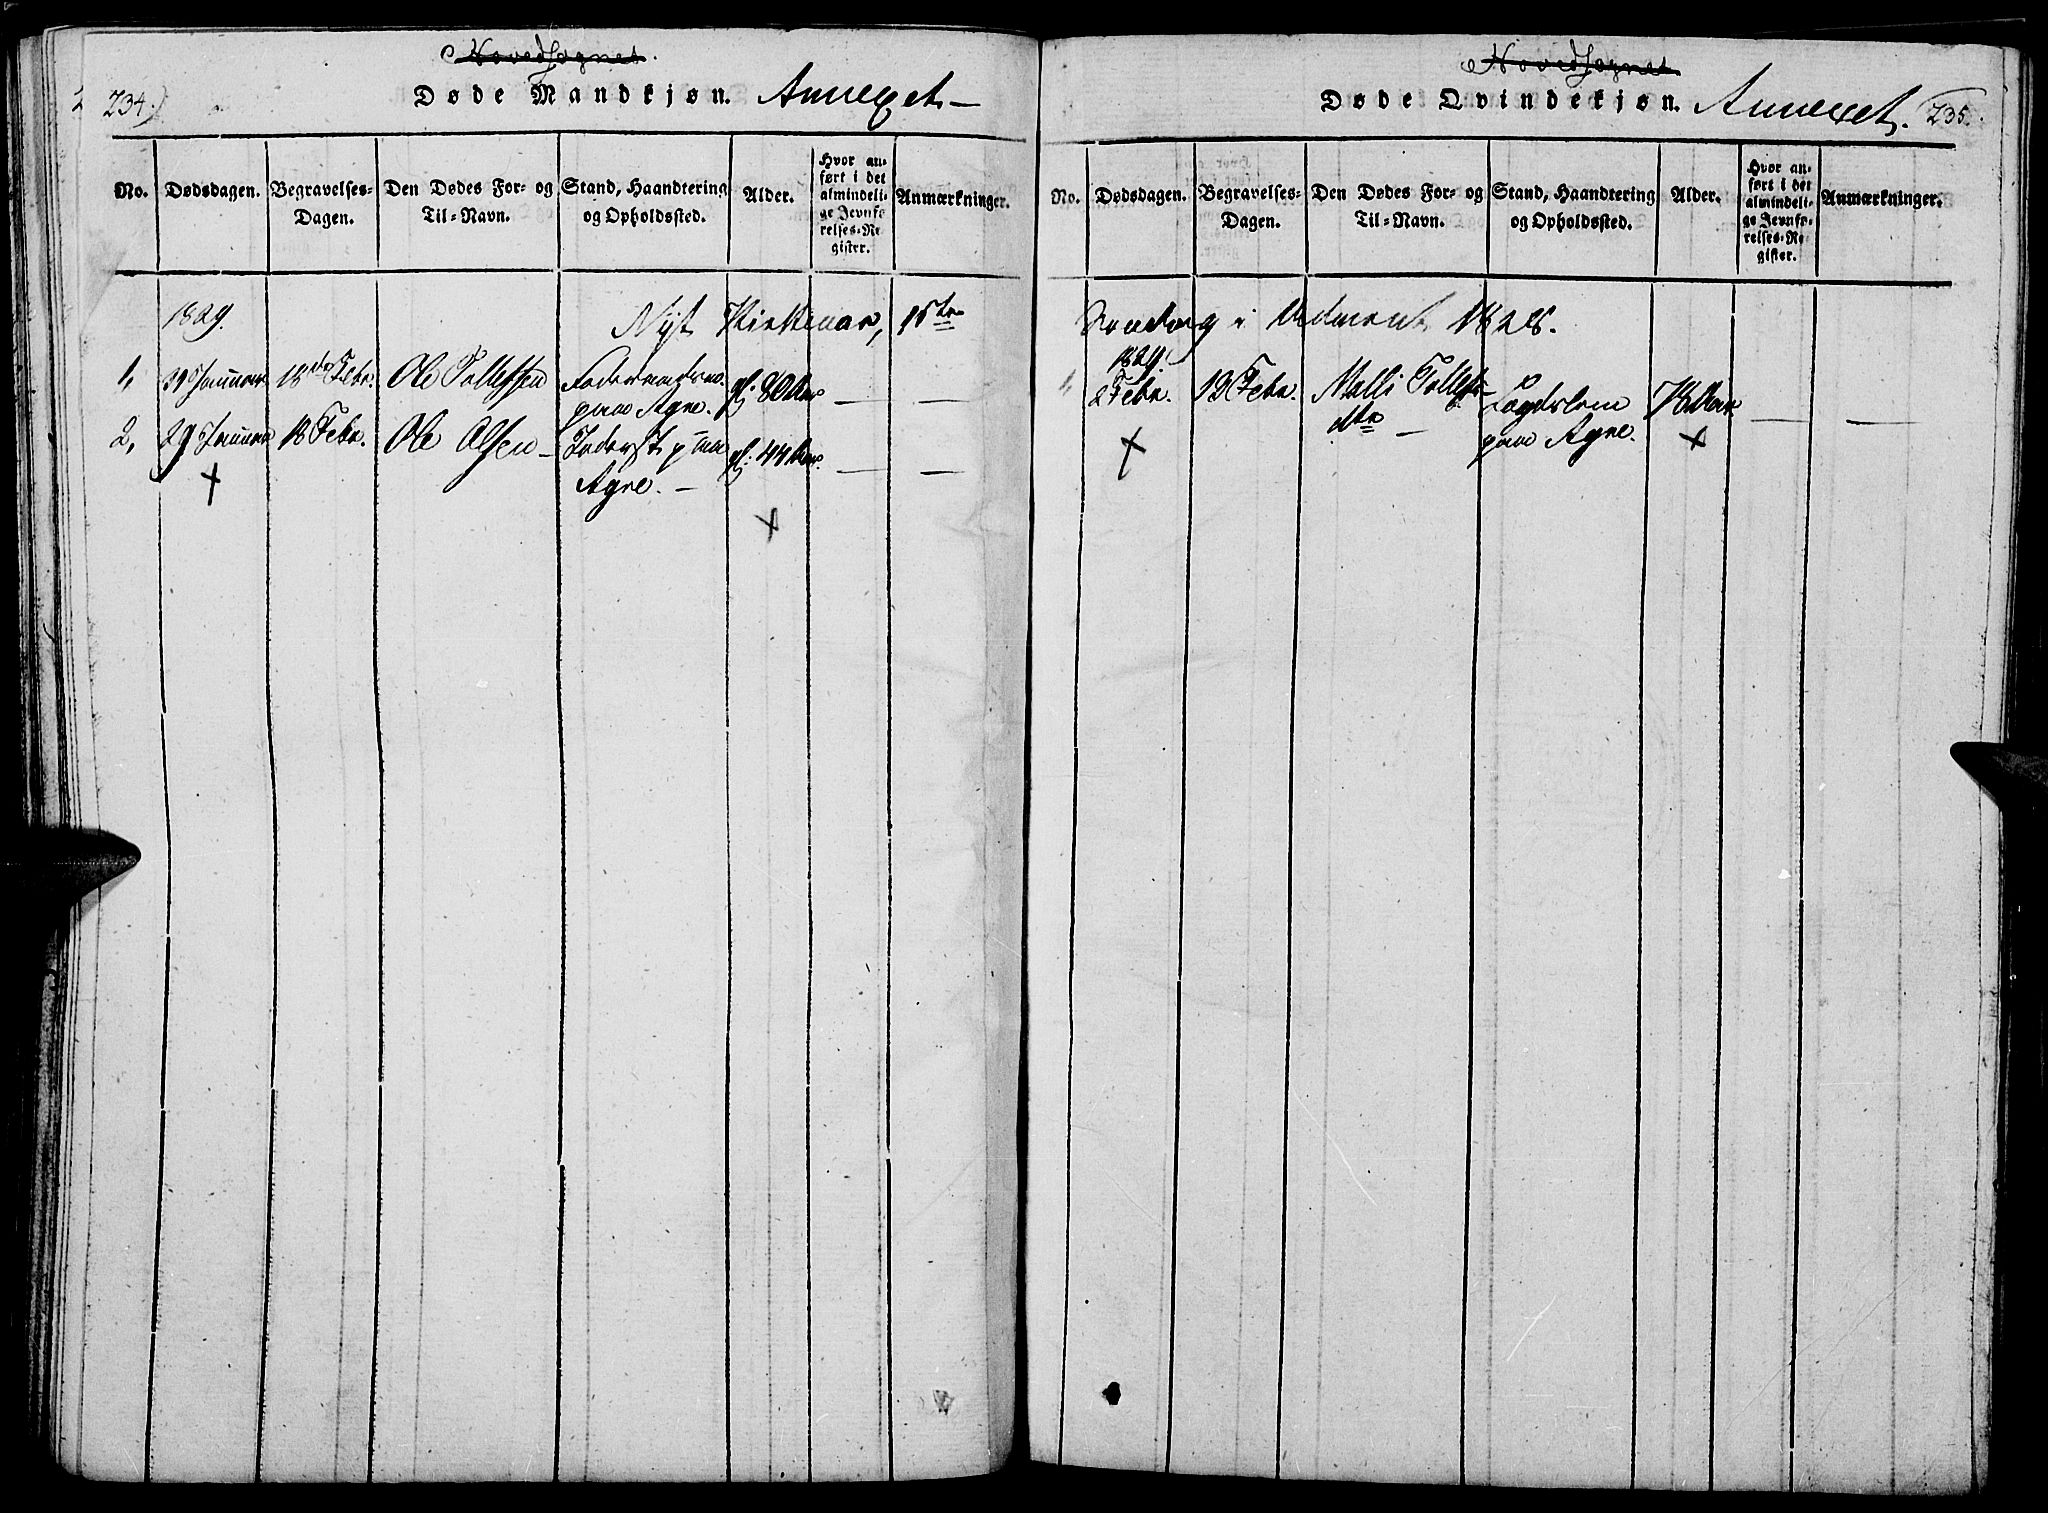 Hovedsognet.
234.)
Døde Mandkjøn. Annexet –
No. Dødsdagen. Begravelses-Dagen. Den Dødes For- og Til-Navn. Stand, Haandtering og Opholdssted. Alder. Hvor anført i det almindelige Jevnførelses-Register. Anmærkninger.
1829. Nyt Kirkeaar, 1ste
1, Januar 18de Febr. Ole Tollefsen paa Agre. gl: 80 Aar — —
2, 29 Januar 18 Febr. Ole Olsen – Inderst paa Agre. – gl: 44 Aar. — —
Hovedsognet
Døde Qvindekjøn. Annexet. 235.
No. Dødsdagen. Begravelses-Dagen. Den Dødes For- og Til-Navn. Stand, Haandtering og Opholdssted. Alder. Hvor anført i det almindelige Jevnførelses-Register. Anmærkninger.
Søndag i Advent 1828.
1829.
1, 2 Febr. 19 Febr. Malli Tollefsdtr – Lægdslem paa Agre. 78 Aar — —